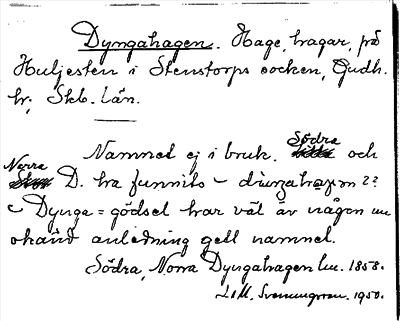 Dyngahagen. Hage, hagar, på
Huljesten i Stenstorps socken, Gudh.
hr; Skb. län.
Namnet ej i bruk. Södra och
Norra D. ha funnits –
Dynga = gödsel har väl av någon nu
okänd anledning gett namnet.
Södra, Norra Dyngahagen lm. 1858.
Svenungsson. 1950.